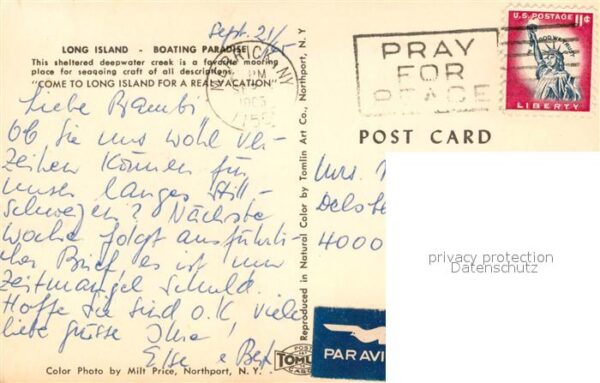 Sept. 21/65
LONG ISLAND - BOATING PARADISE
This sheltered deepwater creek is a favorite mooring
place for seagoing craft of all descriptions.
"COME TO LONG ISLAND FOR A REAL VACATION"
Liebe Bambi
Ob Sie uns wohl ver-
zeihen können für
unser langes Still-
schweigen? Nächste
Woche folgt ausführli-
cher Brief, es ist nur
Zeitmangel Schuld.
Hoffe Sie sind O.K. Viele
liebe grüsse Ihre!
Else
Color Photo by Milt Price, Northport, N. Y.
Reproduced in Natural Color by Tomlin Art Co., Northport, N. Y.
N.Y.
PM
1965
PRAY
FOR
PEACE
U.S. POSTAGE 11¢
LIBERTY
POST CARD
Mrs.
4000
PAR AVI
POST
TOMLIN
CARD
privacy protection
Datenschutz